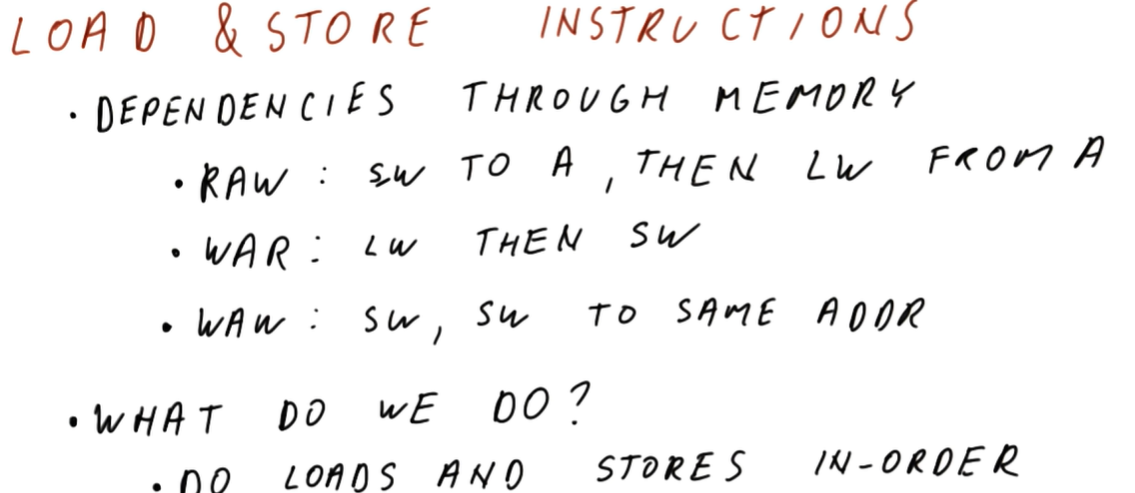 LOAD & STORE INSTRUCTIONS
• DEPENDENCIES THROUGH MEMORY
• RAW : SW TO A , THEN LW FROM A
• WAR : LW THEN SW
• WAW : SW, SW TO SAME ADDR
• WHAT DO WE DO?
• DO LOADS AND STORES IN-ORDER